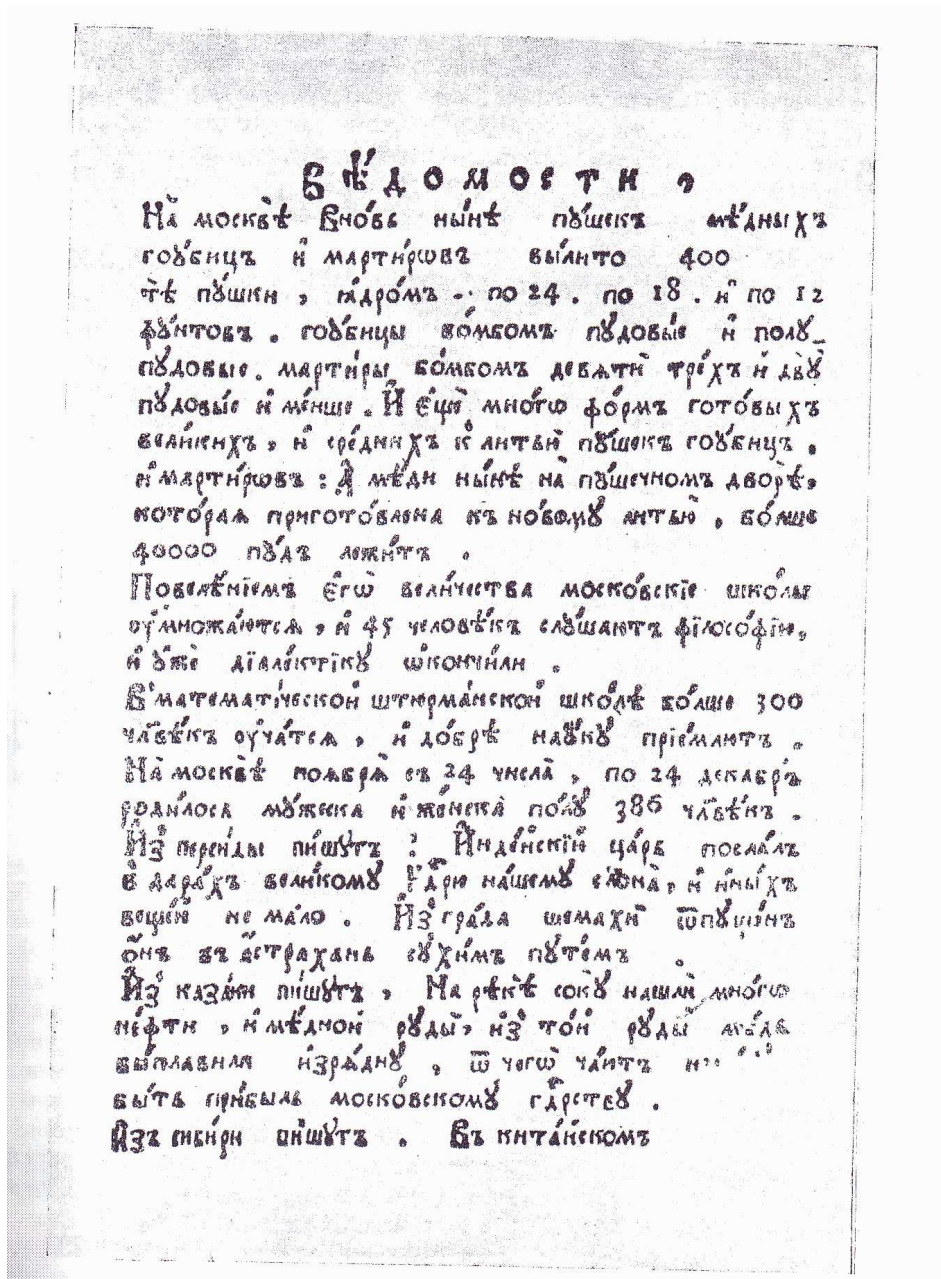 Вѣ́домости ,
На̀ москвѣ̀ вновь ны́нѣ пꙋ́шекъ мѣ́дныхъ
гоꙋ́бицъ и҆ марти́рѡвъ вы́лито 400
тѣ̀ пꙋ́шки , ꙗ҆дро́мъ . по 24 . по 18 . и҆ по 12
фꙋ́нтовъ . гоꙋ́бицы бо́мбомъ пꙋдовы́е и҆ полꙋ_
пꙋ́довые . марти́ры бо́мбомъ девѧтѝ тре́хъ и҆ двꙋ̀
пꙋдовы́е и҆ ме́нше . И҆ є҆щѐ мно́гѡ фо́рмъ гото́выхъ
вели́кихъ , и҆ сре́днихъ к̾ литью̀ пꙋ́шекъ гоꙋ́бицъ .
и҆ марти́рѡвъ : А҆ мѣ́ди ны́нѣ на̀ пꙋ́шечномъ дворѣ̀ ,
кото́раѧ пригото́влена къ но́вомꙋ литью̀ , бо́лше
40000 пꙋ́дъ лежи́тъ .
Повелѣ́нїемъ є҆гѡ̀ вели́чества моско́вскїе шко́лы
оу҆множа́ютсѧ , и҆ 45 человѣ́къ слꙋ́шаютъ фїлосо́фїю ,
и҆ ᲂу҆жѐ дїале́ктїкꙋ ѡ҆ко́нчили .
В̾ математі́ческой штюрма́нской шко́лѣ бо́лше 300
чл҃вѣ́къ оу҆́чатсѧ , и҆ до́брѣ наꙋ́кꙋ прїе́млютъ .
На̀ москвѣ̀ ноѧбрѧ̀ съ 24 числа̀ , по 24 декабрѧ̀
родило́сь мꙋ́жеска и҆ же́нска по́лꙋ 386 чл҃вѣ́къ .
И҆з̾ перси́ды пи́шꙋтъ : И҆нде́йскїй ца́рь посла́лъ
в̾ дара́хъ вели́комꙋ Гдⷭ҇рю на́шемꙋ слона̀ , и҆ и҆ны́хъ
веще́й не ма́ло . И҆з̾ гра́да шемахѝ ѿпꙋ́щенъ
ѻ҆́нъ въ а҆́страхань сꙋхи́мъ пꙋте́мъ .
И҆з̾ каза́ни пи́шꙋтъ , На рѣкѣ̀ сокꙋ̀ нашлѝ мно́гѡ
не́фти , и҆ мѣ́дной рꙋды̀ , и҆з̾ то́й рꙋды̀ мѣ́дь
вы́плавили и҆зрѧ́днꙋ , ѿ чегѡ̀ ча́ютъ
бы́ть при́быль моско́вскомꙋ гдⷭ҇рствꙋ .
И҆зъ сиби́ри пи́шꙋтъ . Въ кита́йскомъ